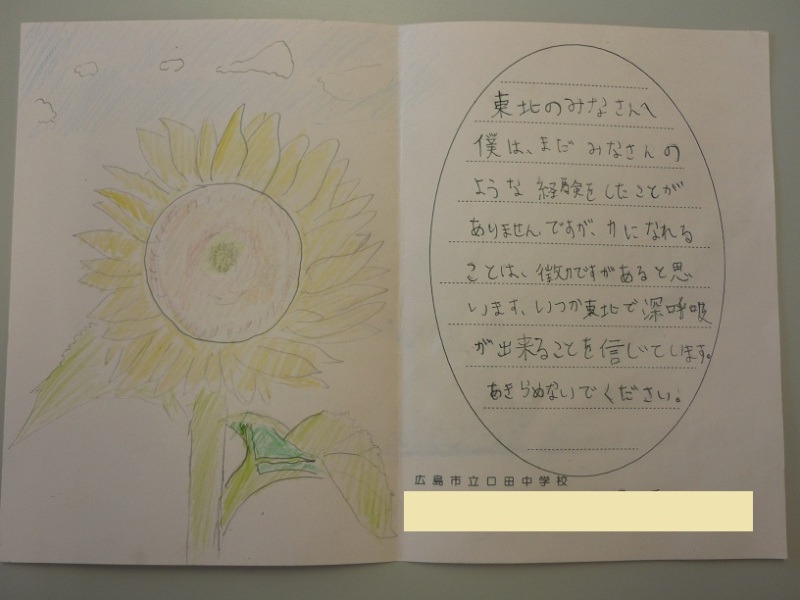 東北のみなさんへ
僕は、まだみなさんの
ような経験をしたことが
ありません。ですが、力になれる
ことは、微力ですがあると思
います。いつか東北で深呼吸
が出来ることを信じてします。
あきらめないでください。
広島市立口田中学校